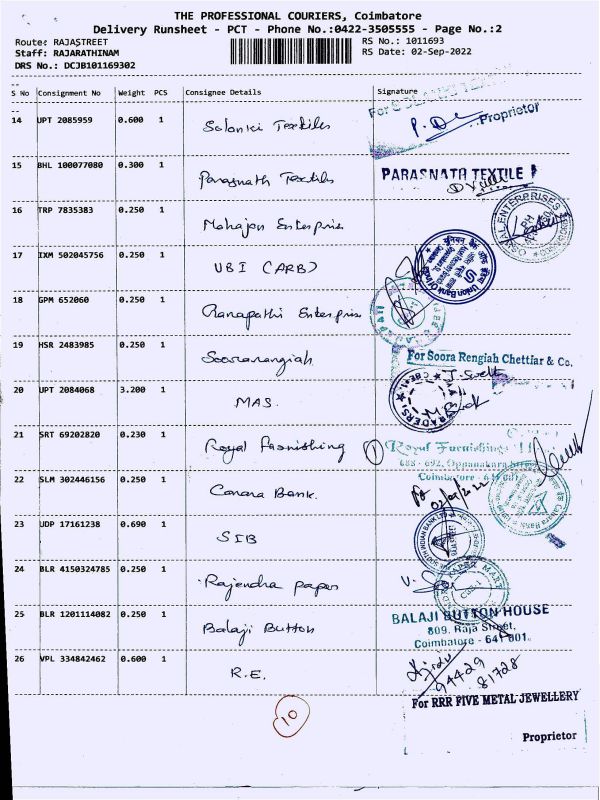 THE PROFESSIONAL COURIERS, Coimbatore
Delivery Runsheet - PCT - Phone No.:0422-3505555 - Page No.:2
Route: RAJASTREET RS No.: 1011693
Staff: RAJARATHINAM RS Date: 02-Sep-2022
DRS No.: DCJB101169302
S No Consignment No Weight PCS Consignee Details Signature
14 UPT 2085959 0.600 1 Solonki Textiles
Proprietor
15 BHL 100077080 0.300 1 Parasnath Textiles PARASNATH TEXTILE
16 TRP 7835383 0.250 1 Mahajan Enterprise
ENTERPRISES
17 IXM 502045756 0.250 1 UBI (ARB)
Union Bank Of India
18 GPM 652060 0.250 1 Ganapathi Enterprise
19 HSR 2483985 0.250 1 Soorarangiah For Soora Rengiah Chettiar & Co.
20 UPT 2084068 3.200 1 MAS.
TRADERS
21 SRT 69202820 0.230 1 Royal Farnishing 1 Royal Furnishing
688 - 692, Oppanakara Street
Coimbatore - 641 001
22 SLM 302446156 0.250 1 Canara Bank. 02/09/22
Canara Bank
23 UDP 17161238 0.690 1 SIB
SOUTH INDIAN BANK LTD
24 BLR 4150324785 0.250 1 Rajendra paper
PAPER MART
25 BLR 1201114082 0.250 1 Balaji Button BALAJI BUTTON HOUSE
809, Raja Street,
Coimbatore - 641 001.
26 VPL 334842462 0.600 1 R.E.
94429
81728
10
For RRR FIVE METAL JEWELLERY
Proprietor